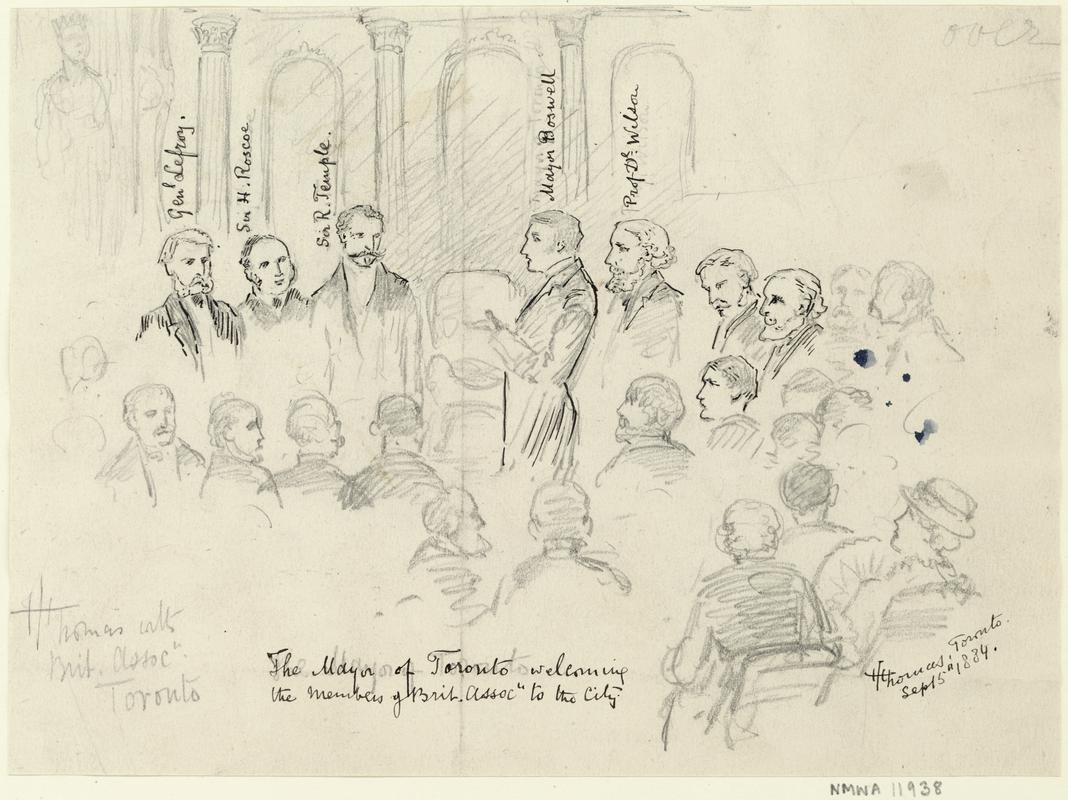 over
Genl Lefroy.
Sir H. Roscoe
Sir R. Temple.
Mayor Boswell
Prof Dr. Wilson
HThomas with
Brit. Assocn.
Toronto
The Mayor of Toronto welcoming
the members of Brit. Assocn to the City
HThomas. Toronto.
Sept 5th 1884.
NMWA 11938